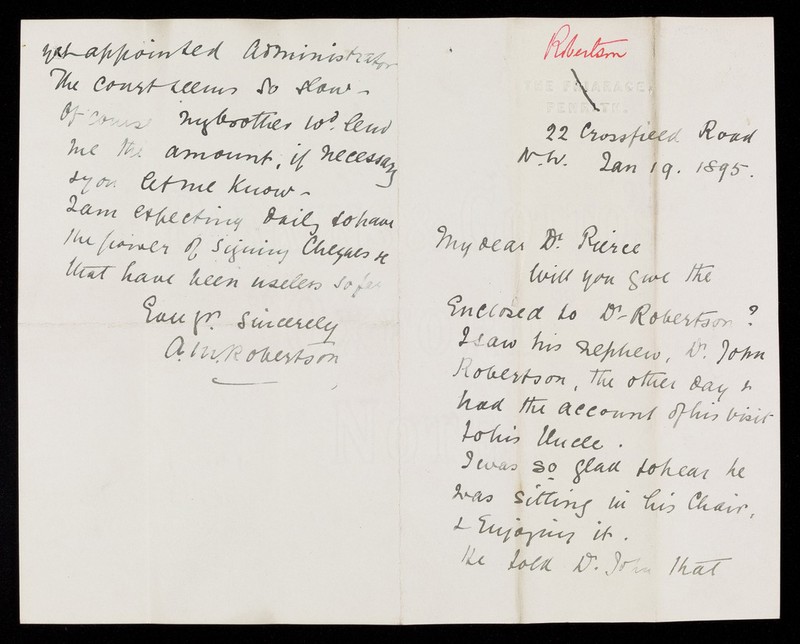 Robertson
22 Crossfield Road
N.W. Jan 19. 1895.
My dear Dr. Pierce
Will you give the
Enclosed to Dr Robertson?
I saw his nephew, Dr. John
Robertson, the other day &
had the account of his visit
to his Uncle.
I was so glad to hear he
was sitting in his Chair,
& Enjoying it.
He told Dr. John that
yet appointed Administrator
The court seems so slow -
Of course my brother wd. lend
me the amount, if necessary
& you let me know -
I am expecting daily to have
the power of signing Cheques &
that have been useless so far
Ever yr. sincerely
A.M. Robertson